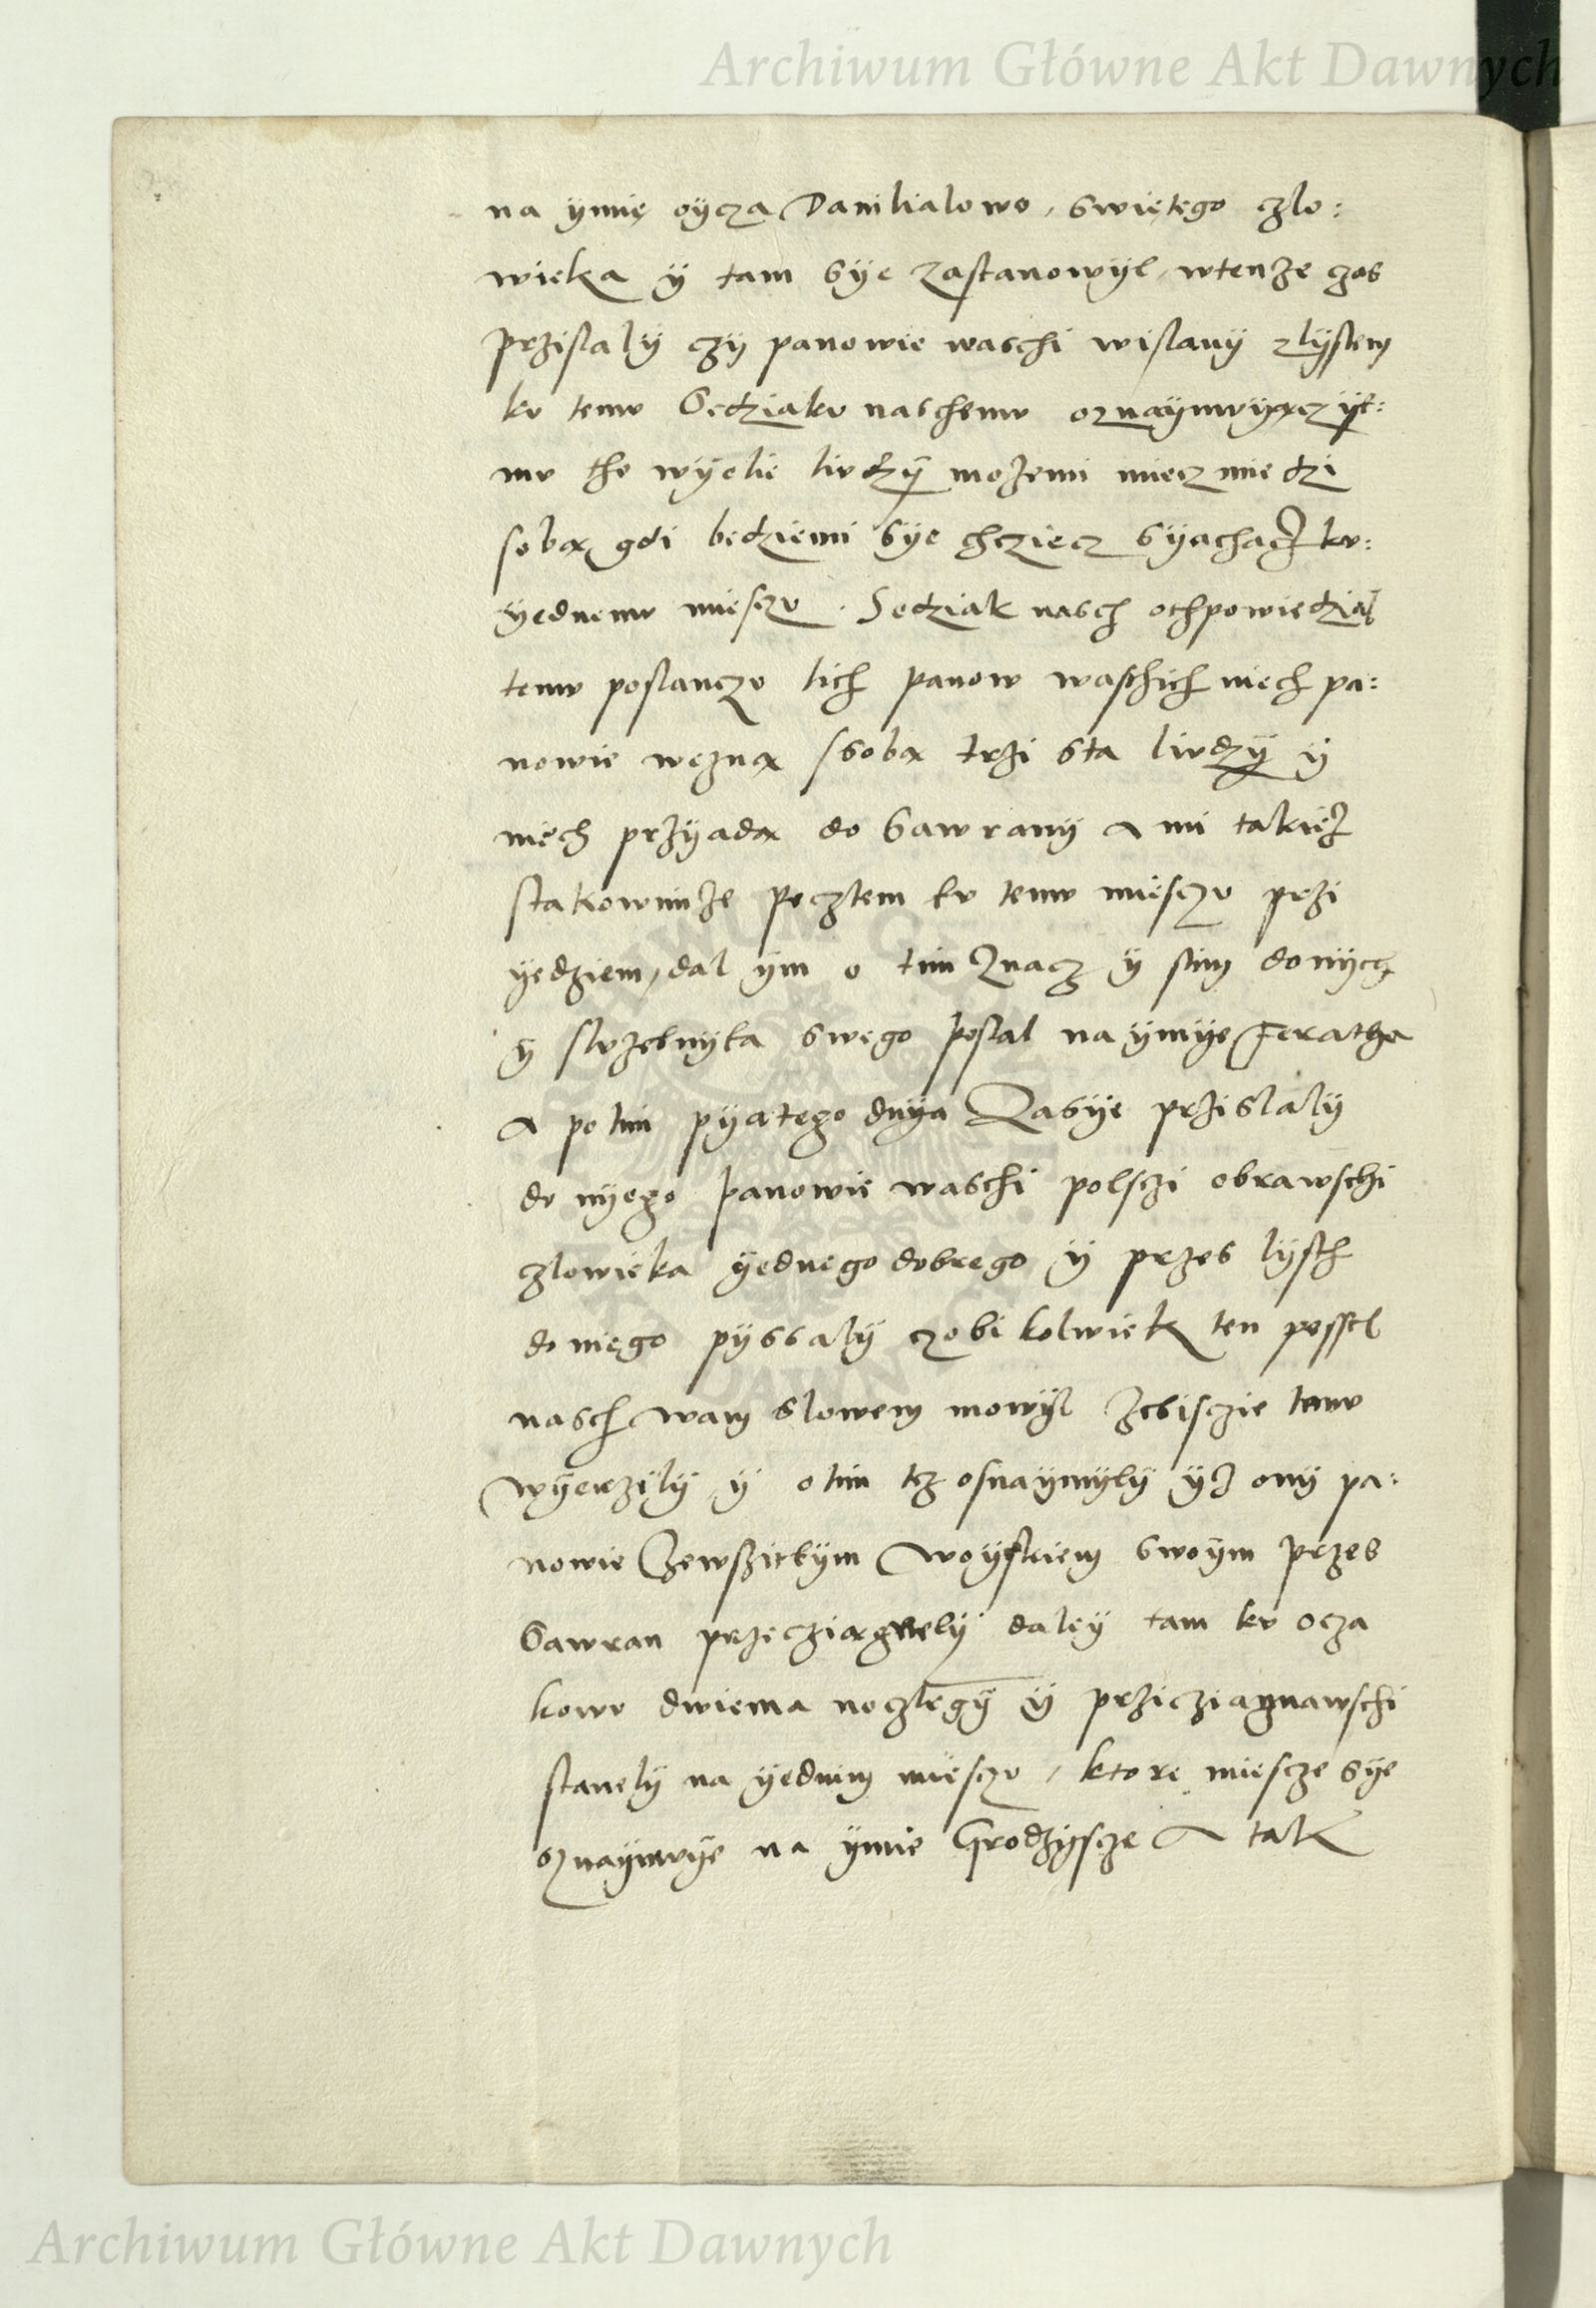 Archiwum Główne Akt Dawnych
na ymię oycza Danilialowo, swiętego czło:
wieka y tam sye zastanowyl, wtenże czas
przislaly czy panowie waschi wislany zlystem
kv temv Sędziakv naschemv
mv the wyelie livdzy możemi miecz miedzi
sobą gdi bedziemi sye chcziecz syachacz kv:
yednemv miesczv. Sedziak nasch othpowiedzial
temv poslanczv tich panow waschich niech pa:
nowie wezną ssobą trzi sta livdzy y
niech przyadą do Sawrany a mi takież
stakowimże pocztem kv temv miesczv przi
yedziem, dal ym o tim znacz y stim donych
y slvżebnyka swego poslal na ymye Feratha
a potim pyatego dnya zasye przislaly
do nyego panowie waschi polsczi obrawschi
czlowieka yednego dobrego y przes lysth
do niego pyssaly czobi kolwiek ten possel
nasch wam slowem mowyl żebisczie temv
wyerzily y otim też osnaymyly yż ony pa:
nowie zewszitkym woyskiem swoym przes
Sawran przecziągnely daley tam kv Ocza
kowv dwiema noczlegy y przicziagnawschi
stanely na yednim miesczv, ktore miescze sye
oznaymvye na ymie Grodzyscze a tak
Archiwum Główne Akt Dawnych